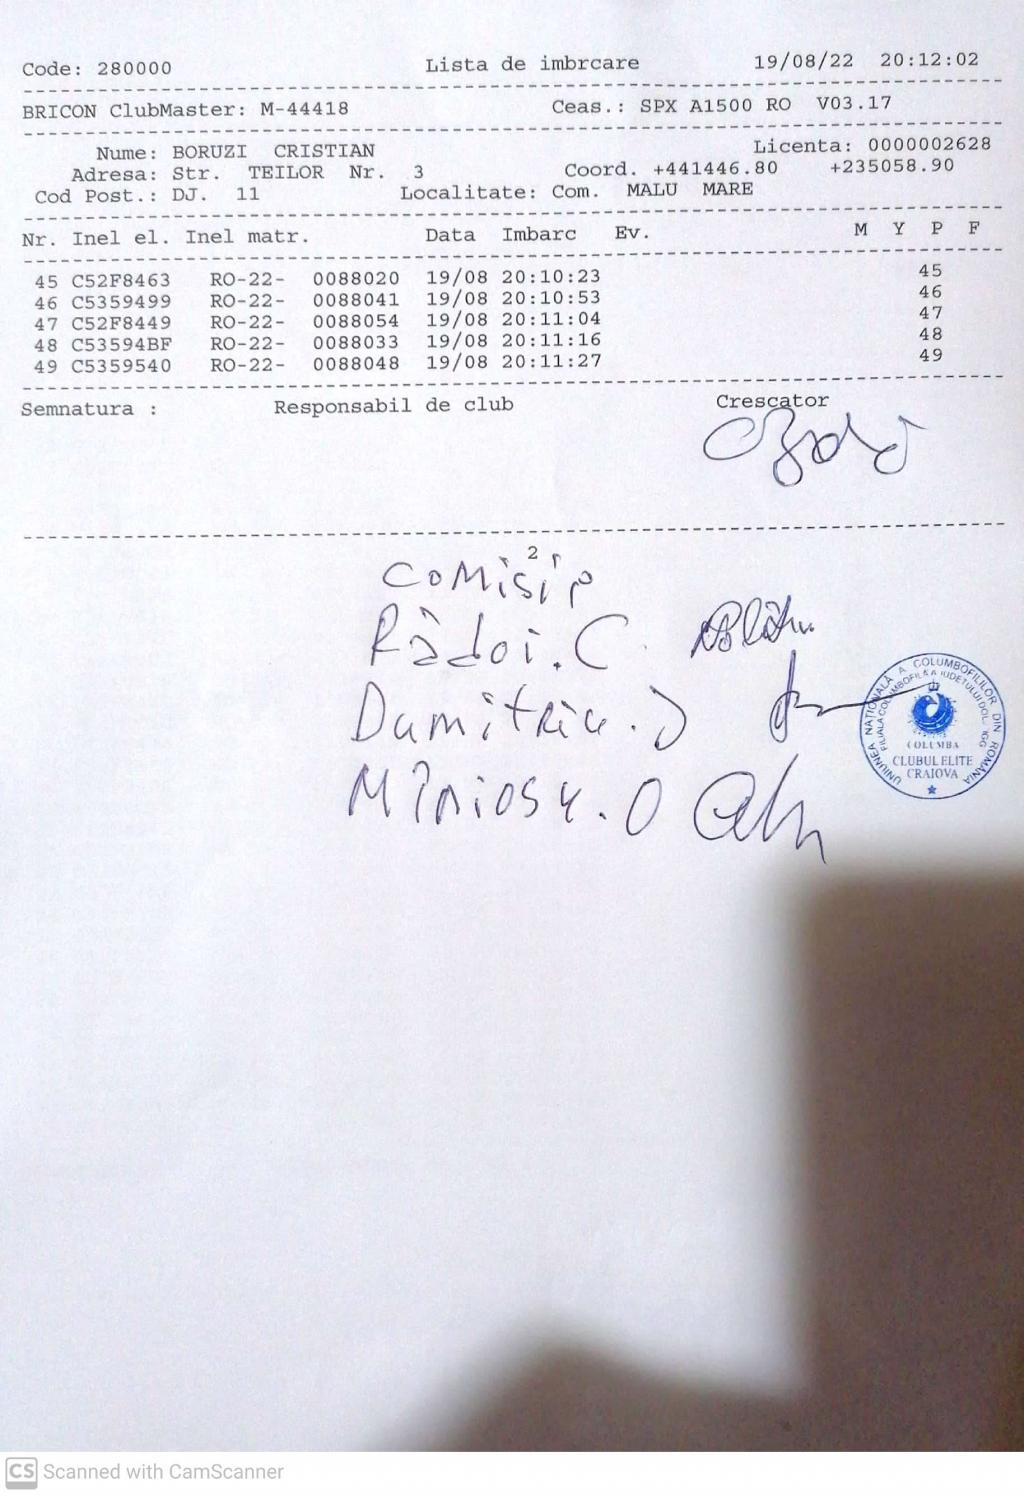 Code: 280000 Lista de imbrcare 19/08/22 20:12:02
BRICON ClubMaster: M-44418 Ceas.: SPX A1500 RO V03.17
Nume: BORUZI CRISTIAN Licenta: 0000002628
Adresa: Str. TEILOR Nr. 3 Coord. +441446.80 +235058.90
Cod Post.: DJ. 11 Localitate: Com. MALU MARE
Nr. Inel el. Inel matr. Data Imbarc Ev. M Y P F
45 C52F8463 RO-22- 0088020 19/08 20:10:23 45
46 C5359499 RO-22- 0088041 19/08 20:10:53 46
47 C52F8449 RO-22- 0088054 19/08 20:11:04 47
48 C53594BF RO-22- 0088033 19/08 20:11:16 48
49 C5359540 RO-22- 0088048 19/08 20:11:27 49
Semnatura : Responsabil de club Crescator
2
Rădoi. C
Dumitriu. D
UNIUNEA NAȚIONALĂ A COLUMBOFILILOR DIN ROMÂNIA
COLUMBA
CLUBUL ELITE
CRAIOVA
CS Scanned with CamScanner